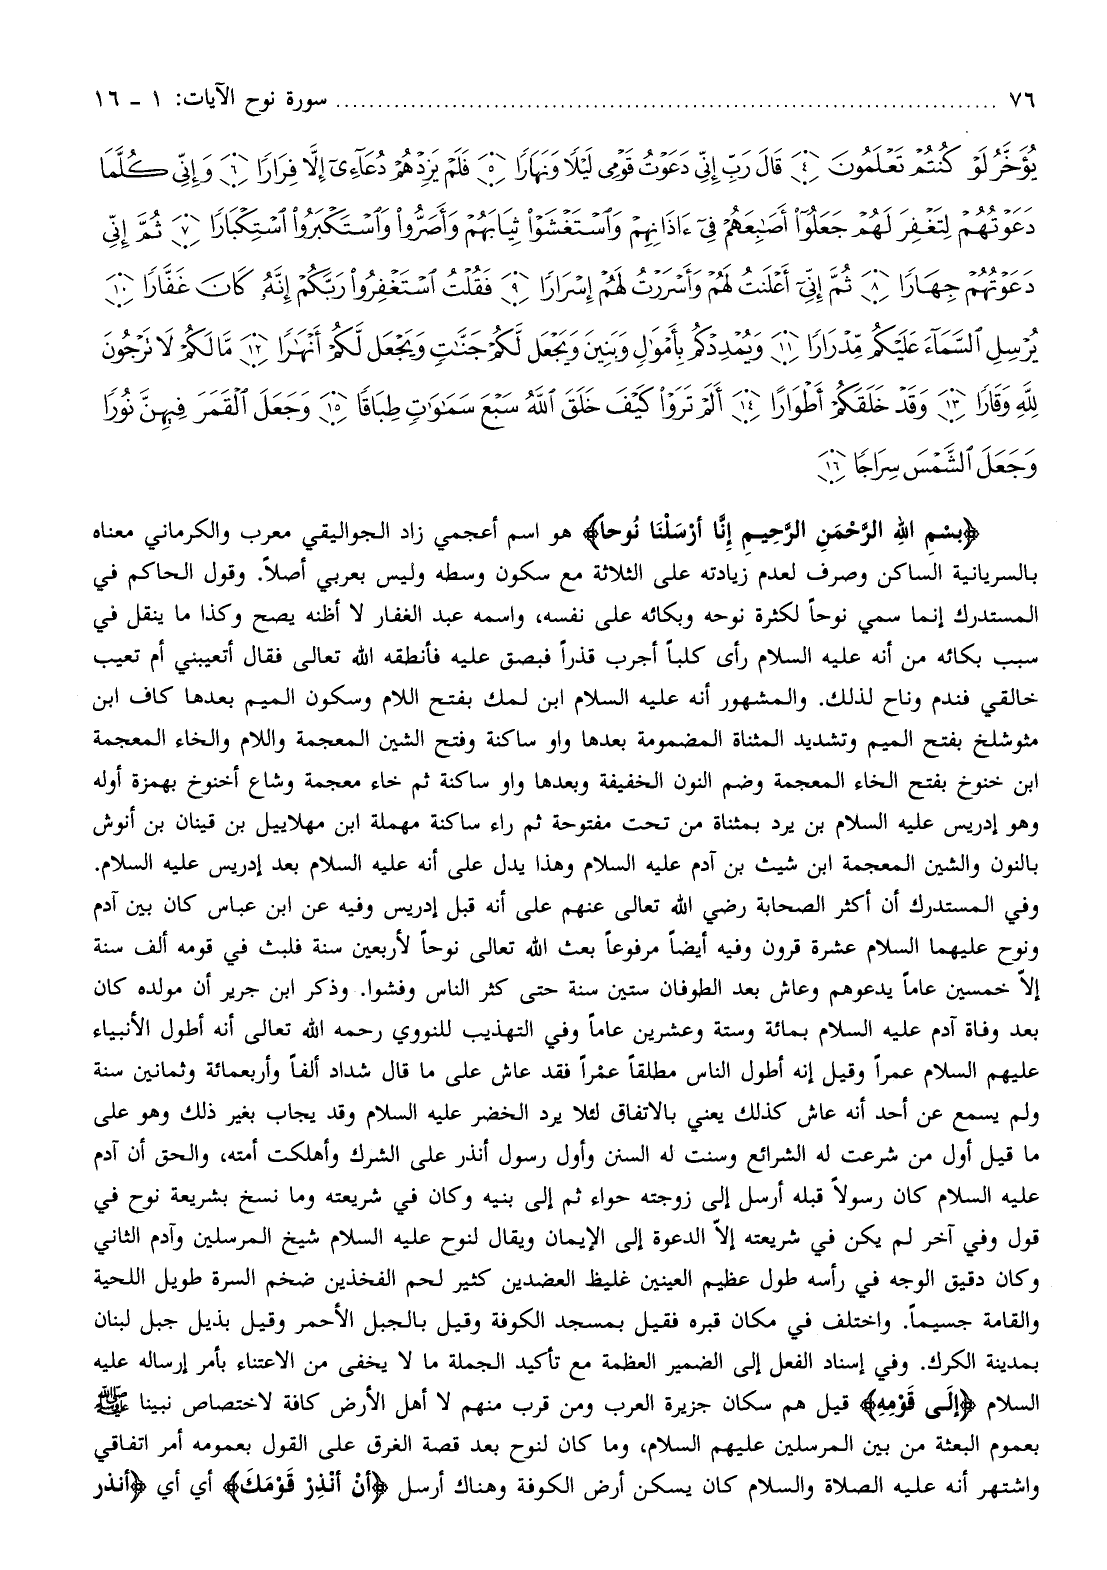 ٧٦ ........................................................ سورة نوح الآيات: ١ - ١٦
يُؤَخَّرُ لَوْ كُنتُمْ تَعْلَمُونَ ﴿٤﴾ قَالَ رَبِّ إِنِّي دَعَوْتُ قَوْمِي لَيْلًا وَنَهَارًا ﴿٥﴾ فَلَمْ يَزِدْهُمْ دُعَآءِيٓ إِلَّا فِرَارًا ﴿٦﴾ وَإِنِّي كُلَّمَا
دَعَوْتُهُمْ لِتَغْفِرَ لَهُمْ جَعَلُوٓا۟ أَصَٰبِعَهُمْ فِيٓ ءَاذَانِهِمْ وَٱسْتَغْشَوْا۟ ثِيَابَهُمْ وَأَصَرُّوا۟ وَٱسْتَكْبَرُوا۟ ٱسْتِكْبَارًا ﴿٧﴾ ثُمَّ إِنِّي
دَعَوْتُهُمْ جِهَارًا ﴿٨﴾ ثُمَّ إِنِّيٓ أَعْلَنتُ لَهُمْ وَأَسْرَرْتُ لَهُمْ إِسْرَارًا ﴿٩﴾ فَقُلْتُ ٱسْتَغْفِرُوا۟ رَبَّكُمْ إِنَّهُۥ كَانَ غَفَّارًا ﴿١٠﴾
يُرْسِلِ ٱلسَّمَآءَ عَلَيْكُم مِّدْرَارًا ﴿١١﴾ وَيُمْدِدْكُم بِأَمْوَٰلٍ وَبَنِينَ وَيَجْعَل لَّكُمْ جَنَّٰتٍ وَيَجْعَل لَّكُمْ أَنْهَٰرًا ﴿١٢﴾ مَّا لَكُمْ لَا تَرْجُونَ
لِلَّهِ وَقَارًا ﴿١٣﴾ وَقَدْ خَلَقَكُمْ أَطْوَارًا ﴿١٤﴾ أَلَمْ تَرَوْا۟ كَيْفَ خَلَقَ ٱللَّهُ سَبْعَ سَمَٰوَٰتٍ طِبَاقًا ﴿١٥﴾ وَجَعَلَ ٱلْقَمَرَ فِيهِنَّ نُورًا
وَجَعَلَ ٱلشَّمْسَ سِرَاجًا ﴿١٦﴾
﴿بِسْمِ اللهِ الرَّحْمَنِ الرَّحِيمِ إِنَّا أَرْسَلْنَا نُوحاً﴾ هو اسم أعجمي زاد الجواليقي معرب والكرماني معناه
بالسريانية الساكن وصرف لعدم زيادته على الثلاثة مع سكون وسطه وليس بعربي أصلاً. وقول الحاكم في
المستدرك إنما سمي نوحاً لكثرة نوحه وبكائه على نفسه، واسمه عبد الغفار لا أظنه يصح وكذا ما ينقل في
سبب بكائه من أنه عليه السلام رأى كلباً أجرب قذراً فبصق عليه فأنطقه الله تعالى فقال أتعيبني أم تعيب
خالقي فندم وناح لذلك. والمشهور أنه عليه السلام ابن لمك بفتح اللام وسكون الميم بعدها كاف ابن
متوشلخ بفتح الميم وتشديد المثناة المضمومة بعدها واو ساكنة وفتح الشين المعجمة واللام والخاء المعجمة
ابن خنوخ بفتح الخاء المعجمة وضم النون الخفيفة وبعدها واو ساكنة ثم خاء معجمة وشاع أخنوخ بهمزة أوله
وهو إدريس عليه السلام بن يرد بمثناة من تحت مفتوحة ثم راء ساكنة مهملة ابن مهلاييل بن قينان بن أنوش
بالنون والشين المعجمة ابن شيث بن آدم عليه السلام وهذا يدل على أنه عليه السلام بعد إدريس عليه السلام.
وفي المستدرك أن أكثر الصحابة رضي الله تعالى عنهم على أنه قبل إدريس وفيه عن ابن عباس كان بين آدم
ونوح عليهما السلام عشرة قرون وفيه أيضاً مرفوعاً بعث الله تعالى نوحاً لأربعين سنة فلبث في قومه ألف سنة
إلاّ خمسين عاماً يدعوهم وعاش بعد الطوفان ستين سنة حتى كثر الناس وفشوا. وذكر ابن جرير أن مولده كان
بعد وفاة آدم عليه السلام بمائة وستة وعشرين عاماً وفي التهذيب للنووي رحمه الله تعالى أنه أطول الأنبياء
عليهم السلام عمراً وقيل إنه أطول الناس مطلقاً عمْراً فقد عاش على ما قال شداد ألفاً وأربعمائة وثمانين سنة
ولم يسمع عن أحد أنه عاش كذلك يعني بالاتفاق لئلا يرد الخضر عليه السلام وقد يجاب بغير ذلك وهو على
ما قيل أول من شرعت له الشرائع وسنت له السنن وأول رسول أنذر على الشرك وأهلكت أمته، والحق أن آدم
عليه السلام كان رسولاً قبله أرسل إلى زوجته حواء ثم إلى بنيه وكان في شريعته وما نسخ بشريعة نوح في
قول وفي آخر لم يكن في شريعته إلاّ الدعوة إلى الإيمان ويقال لنوح عليه السلام شيخ المرسلين وآدم الثاني
وكان دقيق الوجه في رأسه طول عظيم العينين غليظ العضدين كثير لحم الفخذين ضخم السرة طويل اللحية
والقامة جسيماً. واختلف في مكان قبره فقيل بمسجد الكوفة وقيل بالجبل الأحمر وقيل بذيل جبل لبنان
بمدينة الكرك. وفي إسناد الفعل إلى الضمير العظمة مع تأكيد الجملة ما لا يخفى من الاعتناء بأمر إرساله عليه
السلام ﴿إِلَى قَوْمِهِ﴾ قيل هم سكان جزيرة العرب ومن قرب منهم لا أهل الأرض كافة لاختصاص نبينا ﷺ
بعموم البعثة من بين المرسلين عليهم السلام، وما كان لنوح بعد قصة الغرق على القول بعمومه أمر اتفاقي
واشتهر أنه عليه الصلاة والسلام كان يسكن أرض الكوفة وهناك أرسل ﴿أَنْ أَنْذِرْ قَوْمَكَ﴾ أي أي ﴿أنذر